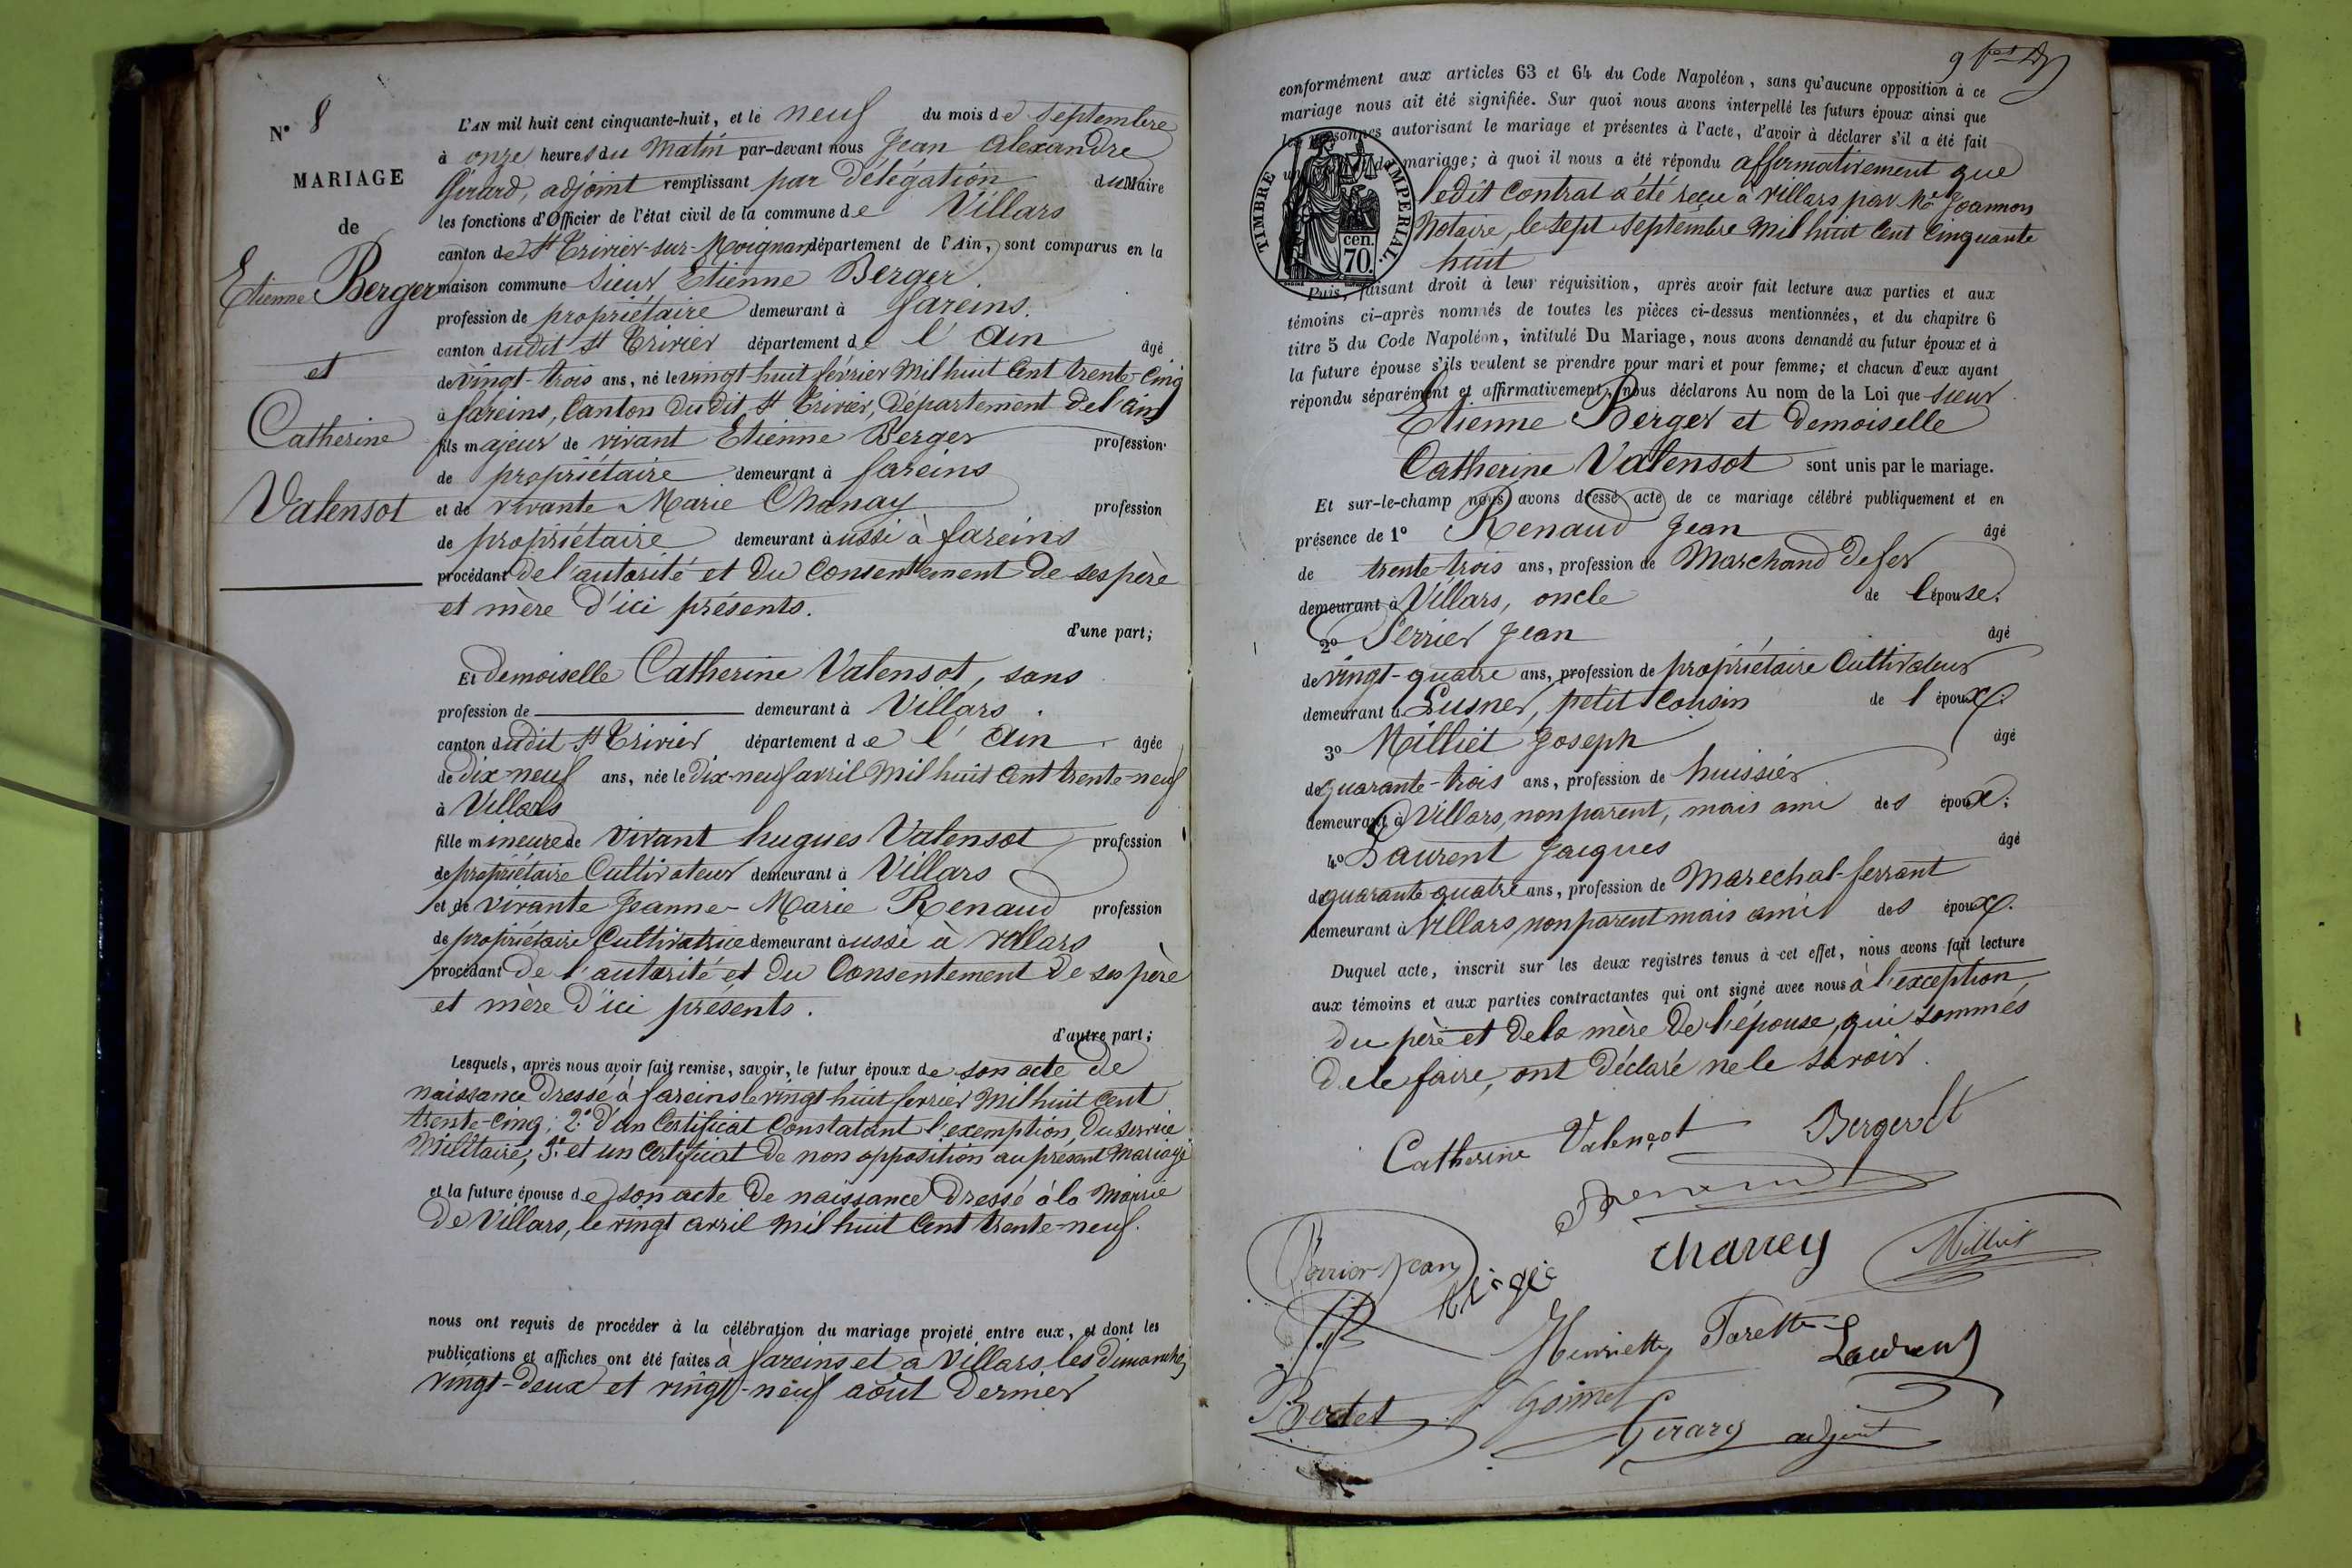 N° 8
MARIAGE
de
Etienne Berger
et
Catherine
Valensot
L'AN mil huit cent cinquante-huit, et le neuf du mois de septembre
à onze heures du Matin par-devant nous Jean Alexandre
Girard, adjoint remplissant par délégation du Maire
les fonctions d'Officier de l'état civil de la commune de Villars
canton de St Trivier-sur-Moignans département de l'Ain, sont comparus en la
maison commune sieur Etienne Berger
profession de propriétaire demeurant à fareins.
canton dudit St Trivier département de l'Ain âgé
de vingt-trois ans, né le vingt-huit février Mil huit Cent trente-Cinq
à fareins, Canton Dudit St Trivier, Département De l'Ain
fils majeur de vivant Etienne Berger profession
de propriétaire demeurant à fareins
et de vivante Marie Chanay profession
de propriétaire demeurant aussi à fareins
procédant de l'autorité et Du Consentement De ses père
et mère D'ici présents.
d'une part;
Et Demoiselle Catherine Valensot, sans
profession de demeurant à Villars.
canton dudit St Trivier département de l'Ain âgée
de Dix-neuf ans, née le Dix-neuf avril Mil huit Cent trente-neuf
à Villars
fille mineure de vivant hugues Valensot profession
de propriétaire Cultivateur demeurant à Villars
et de vivante Jeanne-Marie Renaud profession
de propriétaire Cultivatrice demeurant aussi à villars
procédant De l'autorité et Du Consentement De ses père
et mère D'ici présents.
d'autre part;
Lesquels, après nous avoir fait remise, savoir, le futur époux de son acte De
naissance Dressé à fareins le vingt huit fevrier Mil huit Cent
trente-Cinq; 2° D'un Certificat Constatant l'exemption Du service
Militaire; 3° et un Certificat De non opposition au présent Mariage
et la future épouse de son acte De naissance Dressé à la Mairie
De Villars, le vingt avril Mil huit Cent trente-neuf.
nous ont requis de procéder à la célébration du mariage projeté entre eux, et dont les
publications et affiches ont été faites à fareins et à Villars les Dimanches
vingt-Deux et vingt-neuf août Dernier
conformément aux articles 63 et 64 du Code Napoléon, sans qu'aucune opposition à ce
mariage nous ait été signifiée. Sur quoi nous avons interpellé les futurs époux ainsi que
les personnes autorisant le mariage et présentes à l'acte, d'avoir à déclarer s'il a été fait
mariage; à quoi il nous a été répondu affirmativement que
ledit Contrat a été reçu à villars par Me Joannon
Notaire, le sept septembre Mil huit Cent Cinquante
huit
TIMBRE IMPERIAL.
70 cen.
Puis, faisant droit à leur réquisition, après avoir fait lecture aux parties et aux
témoins ci-après nommés de toutes les pièces ci-dessus mentionnées, et du chapitre 6
titre 5 du Code Napoléon, intitulé Du Mariage, nous avons demandé au futur époux et à
la future épouse s'ils veulent se prendre pour mari et pour femme; et chacun d'eux ayant
répondu séparément et affirmativement, nous déclarons Au nom de la Loi que sieur
Etienne Berger et Demoiselle
Catherine Valensot sont unis par le mariage.
Et sur-le-champ nous avons dressé acte de ce mariage célébré publiquement et en
présence de 1° Renaud Jean âgé
de trente-trois ans, profession de Marchand De fer
demeurant à Villars, oncle de l'épouse.
2° Perrier Jean âgé
de vingt-quatre ans, profession de propriétaire Cultivateur
demeurant à Lusner, petit Cousin de l'époux.
3° Milliet Joseph âgé
de quarante-trois ans, profession de huissier
demeurant à Villars, non parent, mais ami des époux;
4° Laurent Jacques âgé
de quarante-quatre ans, profession de Marechal-ferrant
demeurant à Villars, non parent mais ami des époux.
Duquel acte, inscrit sur les deux registres tenus à cet effet, nous avons fait lecture
aux témoins et aux parties contractantes qui ont signé avec nous à l'exception
Du père et De la mère De l'épouse, qui sommés
De le faire, ont Déclaré ne le savoir.
Catherine Valençot Berger
Renaud
Perrier Jean Charrey Milliet
Henriette Laurent
Bertet Girard adjoint